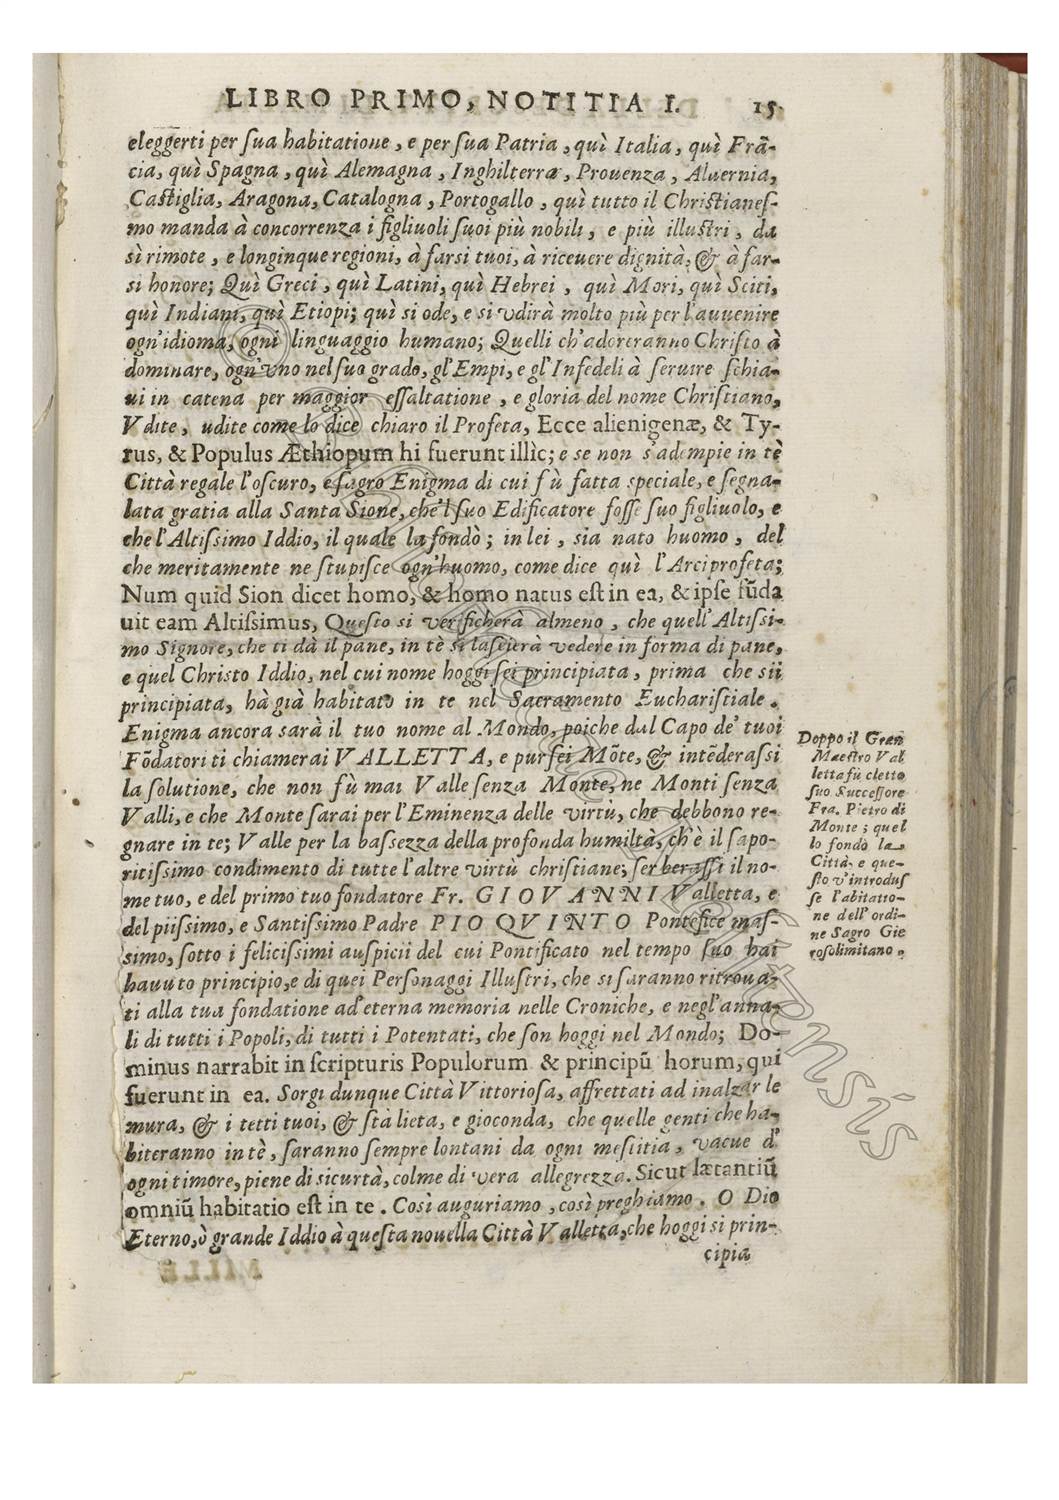 LIBRO PRIMO, NOTITIA I. 15
eleggerti per ſua habitatione, e per ſua Patria, quì Italia, quì Frā-
cia, quì Spagna, quì Alemagna, Inghilterra, Prouenza, Aluernia,
Caſtiglia, Aragona, Catalogna, Portogallo, quì tutto il Chriſtianeſ-
mo manda à concorrenza i figliuoli ſuoi più nobili, e più illuſtri, da
sì rimote, e longinque regioni, à farsi tuoi, à riceuere dignità, & à far-
si honore; Quì Greci, quì Latini, quì Hebrei, quì Mori, quì Sciti,
quì Indiani, quì Etiopi; quì si ode, e si vdirà molto più per l'auuenire
ogn'idioma, ogni linguaggio humano; Quelli ch'adoreranno Chriſto à
dominare, ogn'vno nel ſuo grado, gl'Empi, e gl'Infedeli à ſeruire ſchia-
ui in catena per maggior eſſaltatione, e gloria del nome Chriſtiano,
Vdite, udite come lo dice chiaro il Profeta, Ecce alienigenæ, & Ty-
rus, & Populus Æthiopum hi fuerunt illìc; e se non s'adempie in tè
Città regale l'oſcuro, e ſagro Enigma di cui fù fatta ſpeciale, e ſegna-
lata gratia alla Santa Sione, che'l ſuo Edificatore foſſe ſuo figliuolo, e
che l'Altiſſimo Iddio, il quale la fondò; in lei, sia nato huomo, del
che meritamente ne ſtupiſce ogn'huomo, come dice quì l'Arciprofeta;
Num quid Sion dicet homo, & homo natus eſt in ea, & ipſe fūda
uit eam Altiſsimus, Queſto si verificherà almeno, che quell'Altiſsi-
mo Signore, che ti dà il pane, in tè si laſcierà vedere in forma di pane,
e quel Chriſto Iddio, nel cui nome hoggi ſei principiata, prima che sii
principiata, hà già habitato in te nel Sacramento Euchariſtiale.
Enigma ancora sarà il tuo nome al Mondo, poiche dal Capo de' tuoi
Fōdatori ti chiamerai VALLETTA, e pur ſei Mōte, & intēderaſsi
la ſolutione, che non fù mai Valle ſenza Monte, ne Monti ſenza
Valli, e che Monte ſarai per l'Eminenza delle virtù, che debbono re-
gnare in te; Valle per la baſſezza della profonda humiltà, ch'è il ſapo-
ritiſsimo condimento di tutte l'altre virtù chriſtiane; ſerberaſſi il no-
me tuo, e del primo tuo fondatore Fr. GIOVANNI Valletta, e
del piiſsimo, e Santiſsimo Padre PIO QVINTO Pontefice maſ-
simo, ſotto i feliciſsimi auſpicii del cui Pontificato nel tempo ſuo hai
hauuto principio, e di quei Perſonaggi Illuſtri, che si ſaranno ritroua-
ti alla tua fondatione ad'eterna memoria nelle Croniche, e negl'anna-
li di tutti i Popoli, di tutti i Potentati, che ſon hoggi nel Mondo; Do-
minus narrabit in ſcripturis Populorum & principū horum, qui
fuerunt in ea. Sorgi dunque Città Vittorioſa, affrettati ad inalzar le
mura, & i tetti tuoi, & ſtà lieta, e gioconda, che quelle genti che ha-
biteranno in tè, ſaranno ſempre lontani da ogni meſtitia, vacue d'
ogni timore, piene di sicurtà, colme di vera allegrezza. Sicut lætantiū
omniū habitatio eſt in te. Così auguriamo, così preghiamo. O Dio
Æterno, ò grande Iddio à queſta nouella Città Valletta, che hoggi si prin-
cipia
Doppo il Gran
Maeſtro Val
letta fù eletto
ſuo Succeſſore
Fra. Pietro di
Monte; quel
lo fondò la
Città, e que-
ſto v'introduſ
ſe l'abitatio-
ne dell'ordi-
ne Sagro Gie
roſolimitano.
© Bibliotheca Zagabiensis